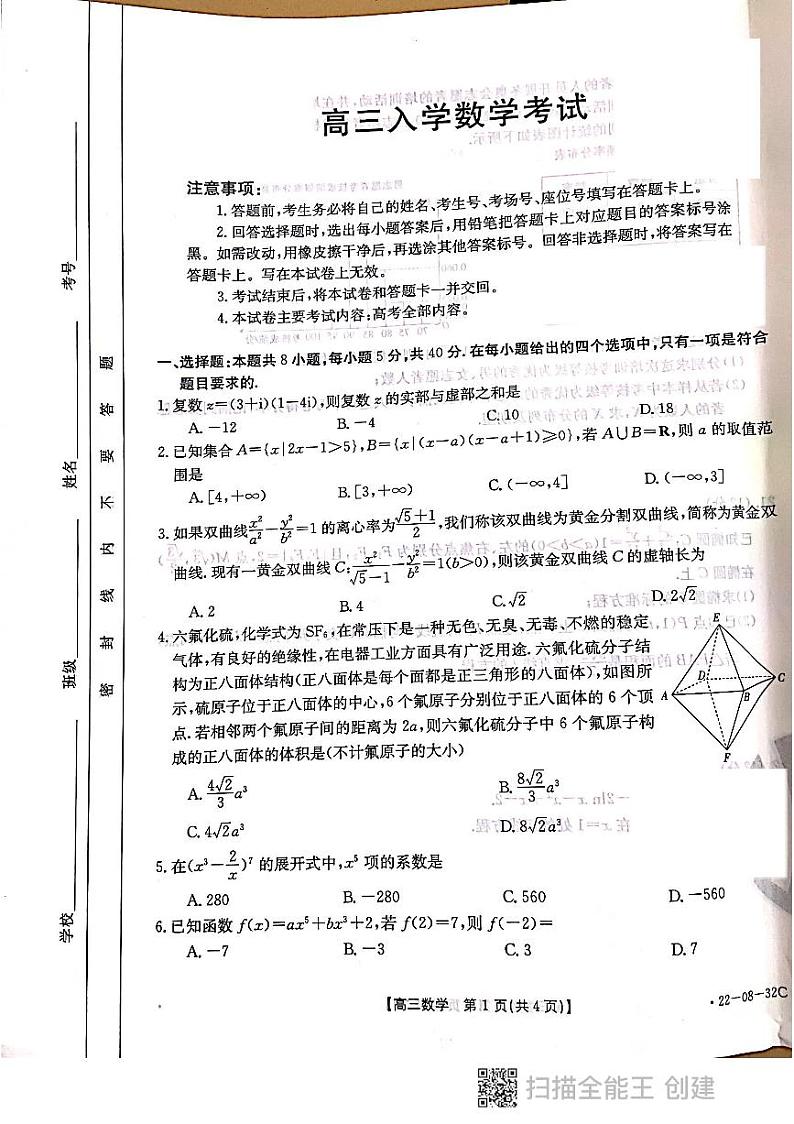 高三入学数学考试
注意事项：
1. 答题前，考生务必将自己的姓名、考生号、考场号、座位号填写在答题卡上。
2. 回答选择题时，选出每小题答案后，用铅笔把答题卡上对应题目的答案标号涂
黑。如需改动，用橡皮擦干净后，再选涂其他答案标号。回答非选择题时，将答案写在
答题卡上。写在本试卷上无效。
3. 考试结束后，将本试卷和答题卡一并交回。
4. 本试卷主要考试内容：高考全部内容。
一、选择题：本题共 8 小题，每小题 5 分，共 40 分. 在每小题给出的四个选项中，只有一项是符合
题目要求的.
1. 复数 z=(3+i)(1−4i)，则复数 z 的实部与虚部之和是
A. −12 B. −4 C. 10 D. 18
2. 已知集合 A={x|2x−1>5}，B={x|(x−a)(x−a+1)≥0}，若 A∪B=R，则 a 的取值范
围是
A. [4,+∞) B. [3,+∞) C. (−∞,4] D. (−∞,3]
3. 如果双曲线 x²/a² − y²/b² =1 的离心率为 (√5+1)/2，我们称该双曲线为黄金分割双曲线，简称为黄金双
曲线. 现有一黄金双曲线 C: x²/(√5−1) − y²/b² =1(b>0)，则该黄金双曲线 C 的虚轴长为
A. 2 B. 4 C. √2 D. 2√2
4. 六氟化硫，化学式为 SF₆，在常压下是一种无色、无臭、无毒、不燃的稳定
气体，有良好的绝缘性，在电器工业方面具有广泛用途. 六氟化硫分子结
构为正八面体结构(正八面体是每个面都是正三角形的八面体)，如图所
示，硫原子位于正八面体的中心，6 个氟原子分别位于正八面体的 6 个顶
点. 若相邻两个氟原子间的距离为 2a，则六氟化硫分子中 6 个氟原子构
成的正八面体的体积是(不计氟原子的大小)
E
D
C
A
B
F
A. 4√2/3 a³ B. 8√2/3 a³
C. 4√2a³ D. 8√2a³
5. 在(x³−2/x)⁷ 的展开式中，x⁵ 项的系数是
A. 280 B. −280 C. 560 D. −560
6. 已知函数 f(x)=ax⁵+bx³+2，若 f(2)=7，则 f(−2)=
A. −7 B. −3 C. 3 D. 7
【高三数学 第 1 页(共 4 页)】
·22−08−32C
考号
姓名
班级
学校
密 封 线 内 不 要 答 题
扫描全能王 创建